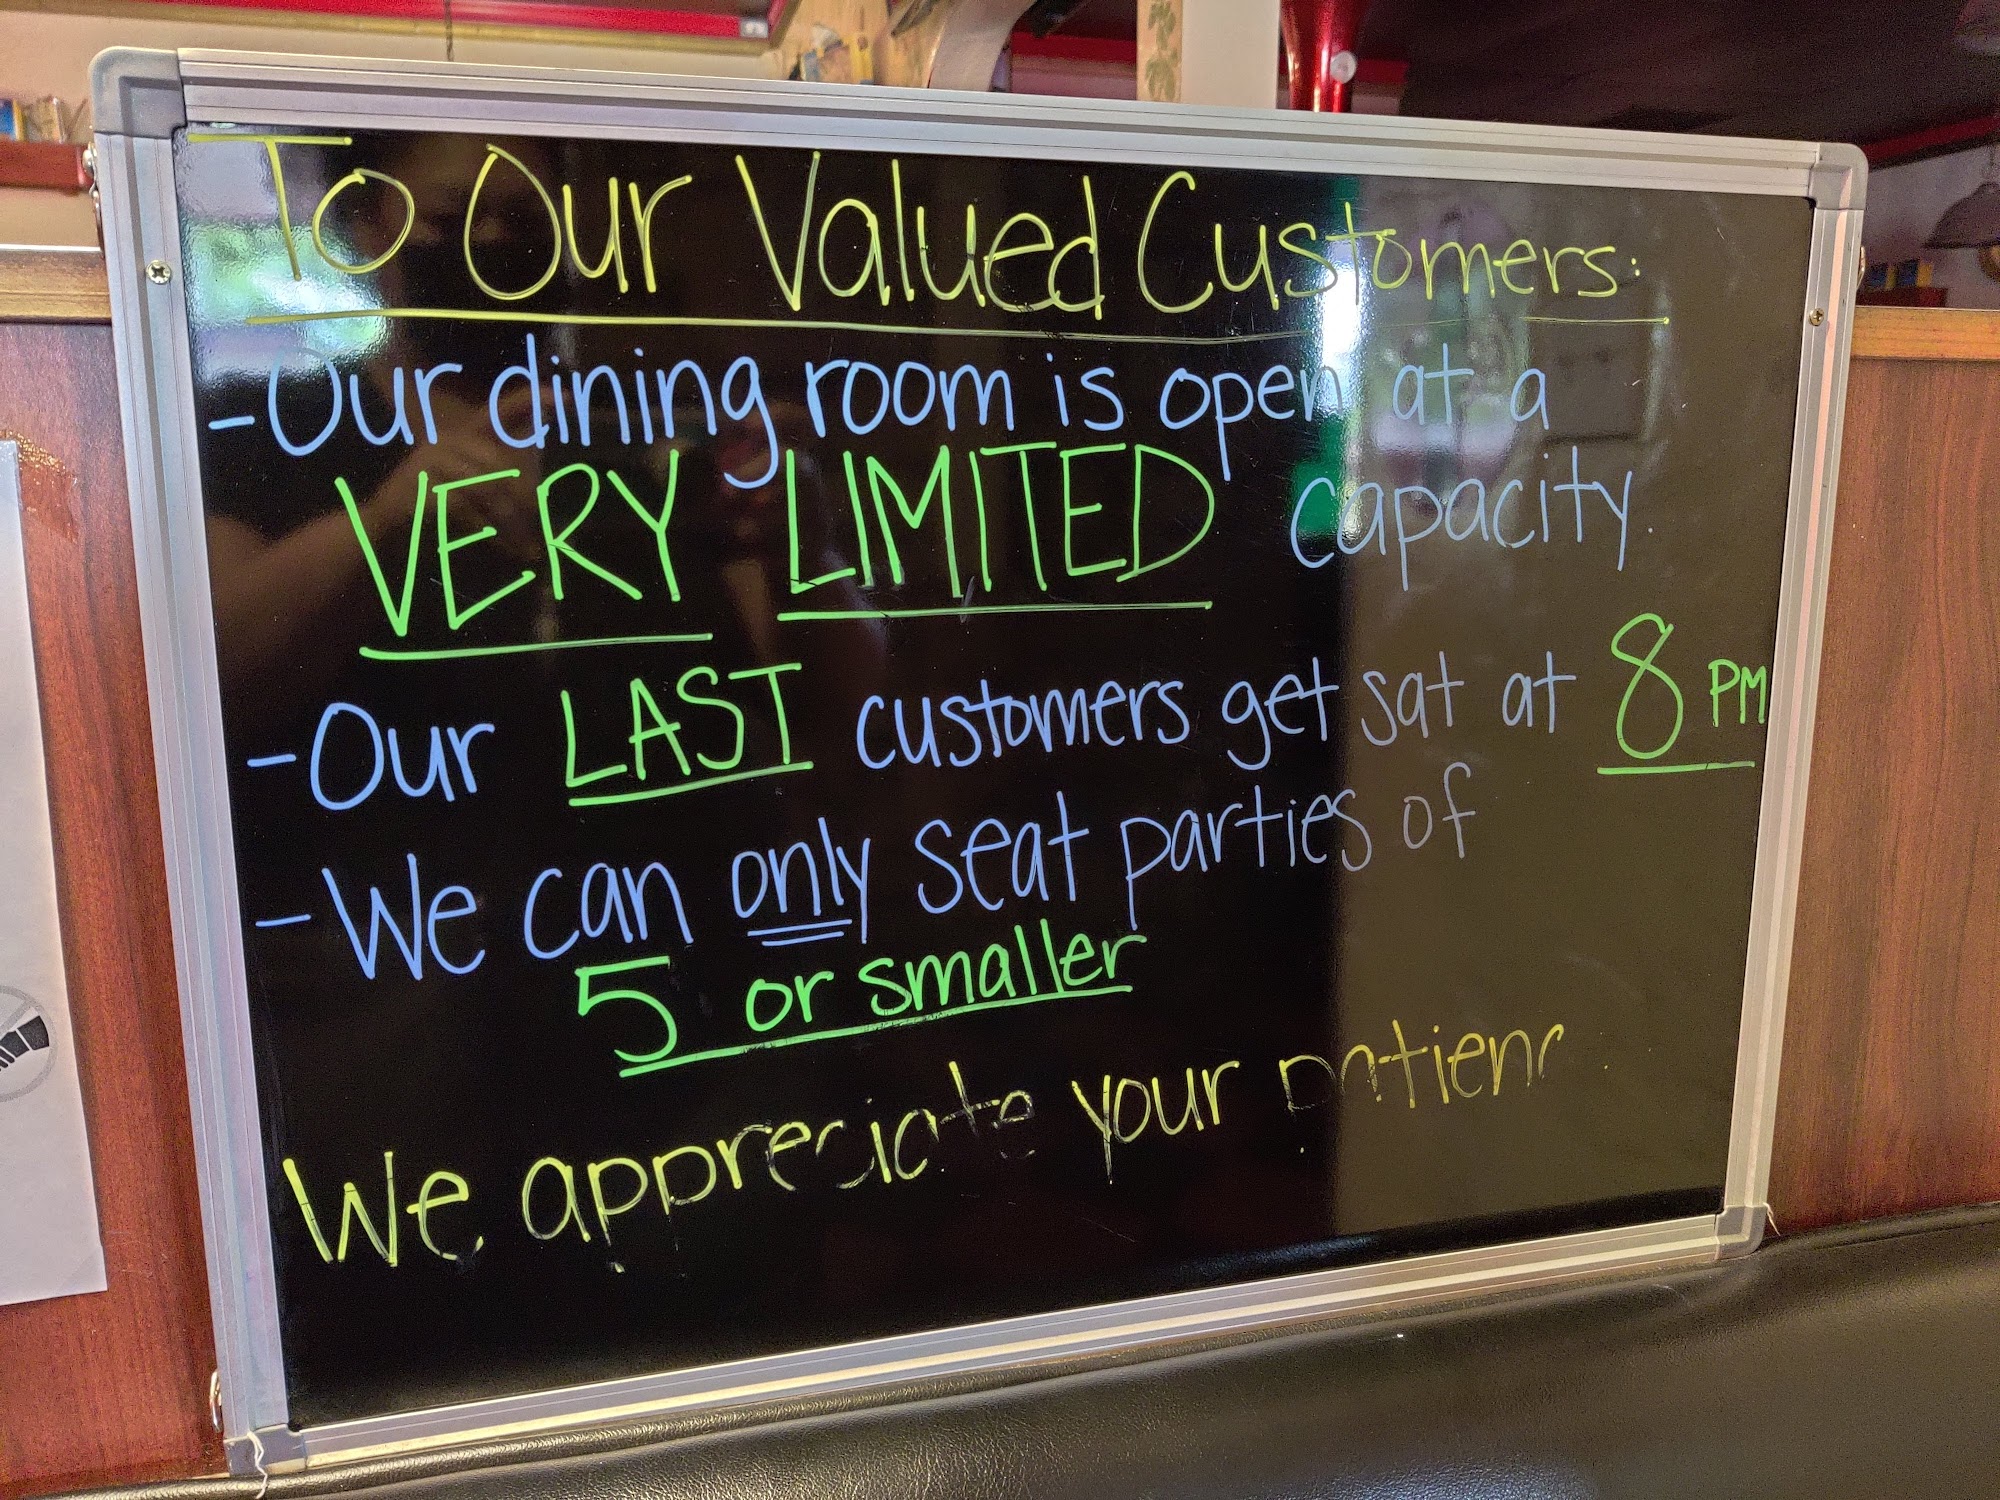 To Our Valued Customers:
-Our dining room is open at a
VERY LIMITED capacity.
-Our LAST customers get sat at 8 PM
-We can only seat parties of
5 or smaller
We appreciate your patienc